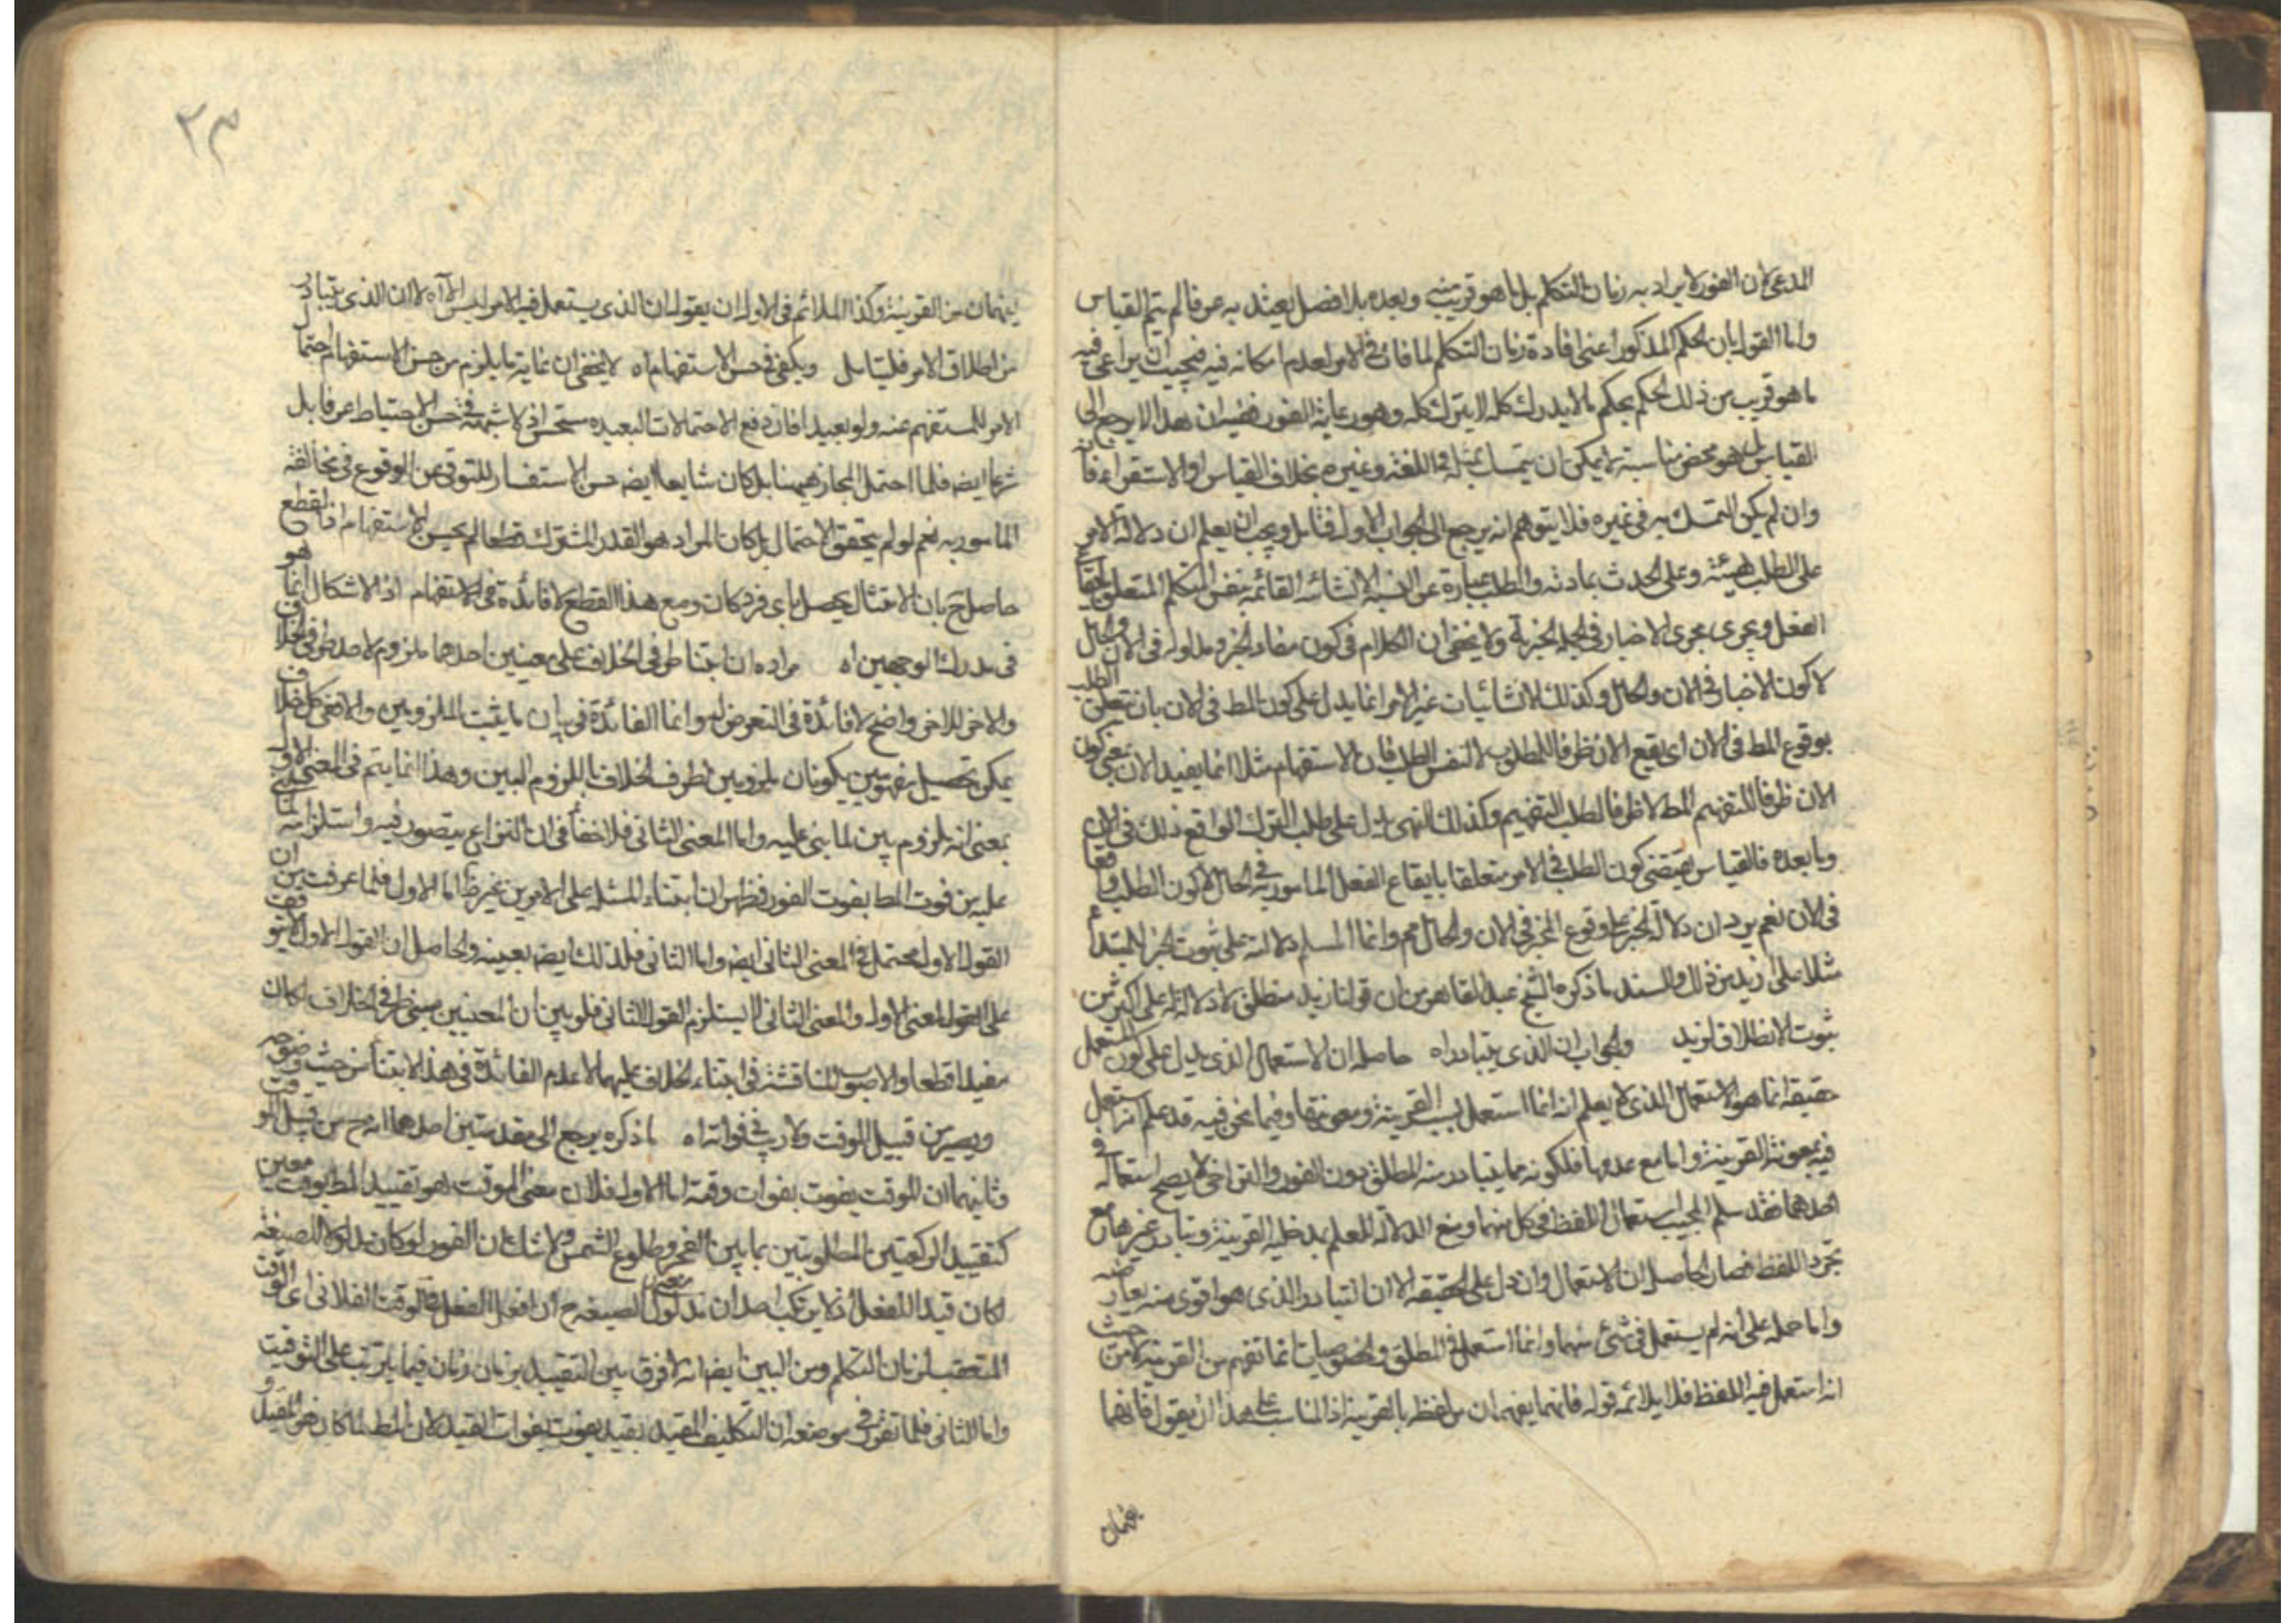 المدعى لان الفور لا يراد به زمان التكلم بل ما هو قريب منه وبعده بلا فصل يعتد به عرفا لم يتم القياس
واما القول بان الحكم المذكور اعنى افادة زمان التكلم لما فات فى الامر لعدم امكانه فيه فيجب ان يراعى فيه
ما هو قريب من ذلك الحكم بحكم ما لا يدرك كله لا يترك كله وهو رعاية الفور ففيه ان هذا لا يرجع الى
القياس بل هو محض مناسبة لا يمكن ان يتمسك بمثله فى اللغة وغيره بخلاف القياس او الاستقراء فان
وان لم يكن التمسك به فى غيره فلا يتوهم انه يرجع الى الجواب الاول فتامل ويجب ان يعلم ان دلالة الامر
على الطلب بهيئته وعلى الحدث بمادته والطلب عبارة عن النسبة الانشائية القائمة بنفس المتكلم المتعلق بايقاع
الفعل ويجرى مجرى الاخبار فى الجملة الخبرية ولا يخفى ان الكلام فى كون مفاد الخبر ومدلوله فى الان والحال
لا كون الاخبار فى الان والحال وكذلك الانشائيات غير الامر انما يدل على كون المط فى الان بان يتعلق الطلب
بوقوع المط فى الان اى يقع الان ظرفا للمطلوب لا لنفس الطلب فان الاستفهام مثلا انما يفيد الان بمعنى كون
الان ظرفا للتفهيم المط لا ظرفا لطلب التفهيم وكذلك النهى يدل على طلب الترك الواقع ذلك فى الان
وما بعده فالقياس يقتضى كون الطلب فى الامر متعلقا بايقاع الفعل المامور به فى الحال لا كون الطلب واقعا
فى الان نعم يرد ان دلالة الخبر على وقوع المخبر فى الان والحال مم وانما المسلم دلالته على ثبوت الخبر للمبتدأ
مثلا على ازيد من ذلك والسند ما ذكره الشيخ عبد القاهر من ان قولنا زيد منطلق لا دلالة له على اكثر من
ثبوت الانطلاق لزيد والجواب ان الذى يتبادر اه حاصله ان الاستعمال الذى يدل على كون المستعمل
حقيقة انما هو الاستعمال الذى لا يعلم انه انما استعمل بسبب القرينة ومعونتها وفيما نحن فيه قد علم انه استعمل
فيه بمعونة القرينة واما مع عدمها فلكونه مما يتبادر منه المطلق دون الفور والتراخى لا يصح استعماله فى
احدهما فقد سلم المجيب استعمال اللفظ فى كل منهما ومنع الدلالة للعلم بمدخلية القرينة وتبادر غيرهما مع
تجرد اللفظ فصار الحاصل ان الاستعمال وان دل على الحقيقة الا ان التبادر الذى هو اقوى منه يعارضه
واما حمله على انه لم يستعمل فى شئ منهما وانما استعمل فى المطلق والخصوصيات انما تفهم من القرينة لا من حيث
انه استعمل فيه اللفظ فلا يلائمه قوله فانهما يفهمان من لفظه بالقرينة اذ المناسب على هذا ان يقول فانهما
يفهمان
٢٣
يفهمان من القرينة وكذا الملائم فى الاول ان يقول ان الذى يستعمل فيه الامر ليس الا اه لا ان الذى يتبادر
من اطلاق الامر فليتامل ويكفى فى حسن الاستفهام اه لا يخفى ان غاية ما يلزم من حسن الاستفهام احتمال
الامر للمستفهم عنه ولو بعيدا فان دفع الاحتمالات البعيدة مستحسن اذ لا شبهة فى حسن الاحتياط عرفا بل
شرعا ايضه فلما احتمل المجاز ههنا بل كان شايعا ايضه حسن الاستفسار للتوقى عن الوقوع فى مخالفة
المامور به نعم لو لم يتحقق الاحتمال بل كان المراد هو القدر المشترك قطعا لم يحسن الاستفهام اذ القطع
حاصل ح بان الامتثال يحصل باى فرد كان ومع هذا القطع لا فائدة فى الاستفهام اذ الاشكال انما هو
فى مدرك الوجهين اه مراده ان ابتناء طرفى الخلاف على معنيين احدهما ملزوم لاحد طرفى الخلاف
والاخر للاخر واضح لا فائدة فى التعرض له وانما الفائدة فى بيان ما يثبت الملزومين والا ففى كل خلاف
يمكن تحصيل مفهومين يكونان ملزومين لطرفى الخلاف باللزوم البين وهذا انما يتم فى المعنى الاول
بمعنى انه ملزوم بين لما بنى عليه واما المعنى الثانى فلا خفأ فى ان النزاع يتصور فيه واستلزامه لما بنى
عليه من فوت المط بفوت الفور فظهر ان ابتناء المسئله على الامرين غير ظ اما الاول فلما عرفت من ان
القول الاول محتمل فى المعنى الثانى ايضه واما الثانى فلذلك ايضه بعينه والحاصل ان القول الاول لا يتوقف
على المعنى الاول والمعنى الثانى لا يستلزم القول الثانى فلو بين ان المعنيين مبنى طرفى الخلاف لكان
مفيدا قطعا والاصوب المناقشة فى ابتناء الخلاف عليهما لا عدم الفائدة فى هذا الابتناء من حيث وضوحه
ويصير من قبيل الموقت ولا ريب فى فواته اه ما ذكره يرجع الى مقدمتين احداهما انه ح من قبيل الموقت
وثانيهما ان الموقت يفوت بفوات وقته اما الاول فلان معنى الموقت هو تقييد المط بوقت معين
كتقييد الركعتين المطلوبتين بما بين الفجر وطلوع الشمس ولا شك ان الفور لو كان مدلولا للصيغة
لكان قيدا للفعل اذ لا يرتكب احد ان معنى مدلول الصيغه ح ان افعل الفعل فى الوقت الفلانى اى الوقت
المتعقب لزمان التكلم ومن البين ايضه انه لا فرق بين التقييد بزمان وزمان فيما يترتب على التوقيت
واما الثانى فلما تقرر فى موضعه ان التكليف المقيد بقيد يفوت بفوات القيد لان المط لما كان هو المقيد و